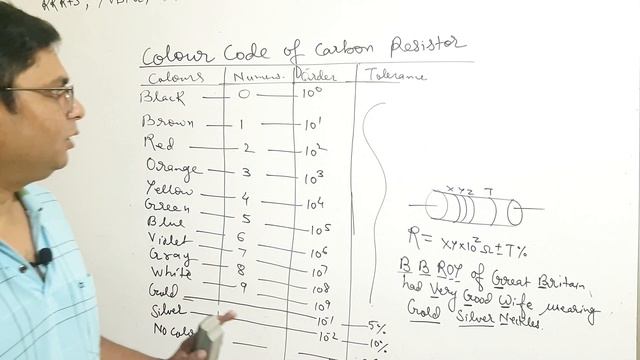 Colour Code of Carbon Resistor
Colours Numers. Order Tolerance
Black 0 10⁰
Brown 1 10¹
Red 2 10²
Orange 3 10³
Yellow 4 10⁴
Green 5 10⁵
Blue 6 10⁶
Violet 7 10⁷
Gray 8 10⁸
White 9 10⁹
Gold 10⁻¹ 5%
Silver 10⁻² 10%
No color
X Y Z T
R = XY×10ᶻ Ω ± T%
B B ROY of Great Britain,
had Very Good Wife wearing
Gold Silver Neckles.